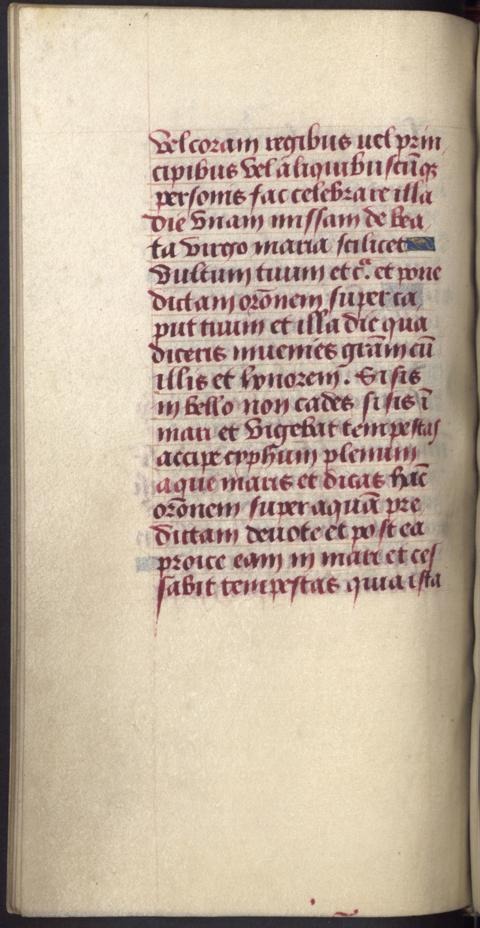 vel coram regibus uel prin
cipibus vel aliquibuscūqꝫ
personis fac celebrare illa
die vnam missam de bea
ta virgo maria scilicet
vultum tuum et cᵃ. et pone
dictam orōnem super ca
put tuum et illa die qua
diceris inuenies grām cū
illis et honorem. Si sis
in bello non cades si sis ī
mari et vigebat tempestas
accipe cyphum plenum
aque maris et dicas hāc
orōnem super aquā pre
dictam deuote et post ea
proice eam in mari et ces
sabit tempestas quia ista